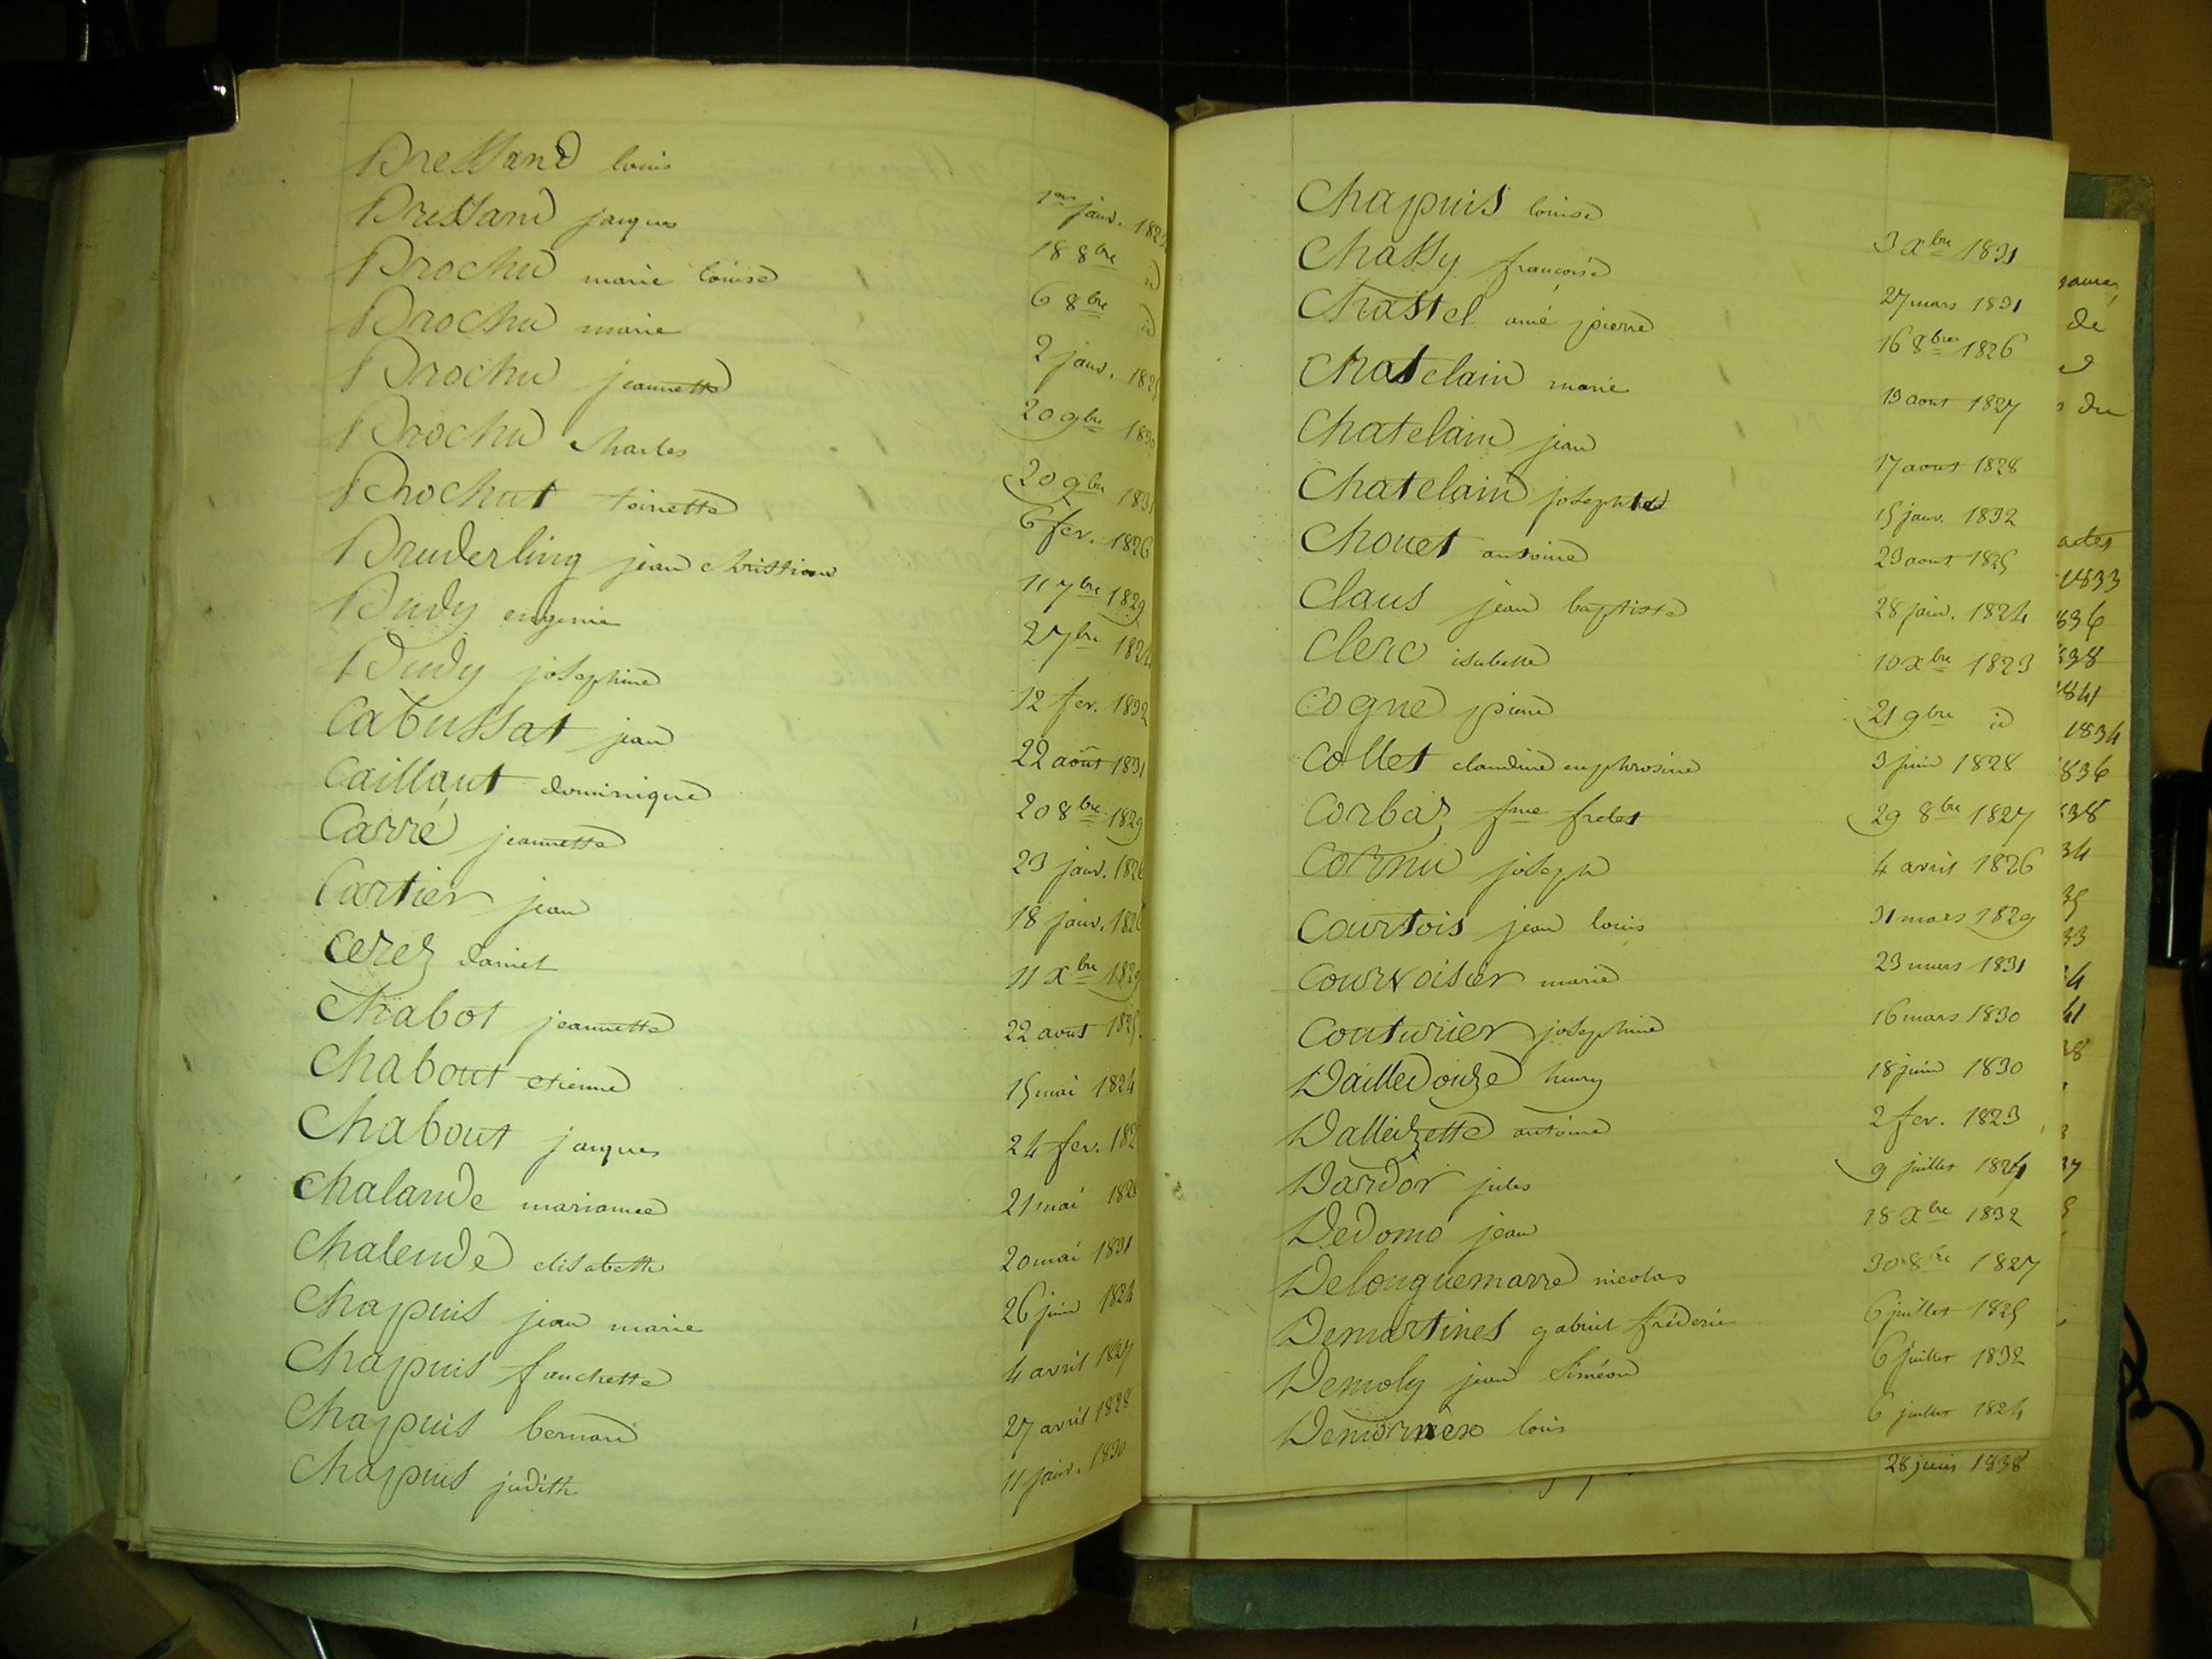 Bressand louis 1er janv. 182
Bressand jacques 18 8bre id
Brochu marie louise 6 8bre id
Brochu marie 2 janv. 1825
Brochu jeannette 20 9bre 1830
Brochu charles 20 9bre 1831
Brochut toinette 6 fev. 1826
Bruderling jean christian 11 7bre 1829
Budy eugenie 2 7bre 1824
Budy josephine 12 fev. 1832
Cabussat jean 22 août 1831
Caillaut dominique 20 8bre 1829
Carré jeannette 23 janv. 1826
Cartier jean 18 janv. 182
Cerez daniel 11 xbre 1829
Chabot jeannette 22 aout 1825.
Chabout etienne 15 mai 1824
Chabout jacques 24 fev. 182
Chalande marianne 21 mai 1828
Chalende elisabeth 20 mai 1831
Chappuis jean marie 26 juin 1824
Chappuis fanchette 4 avril 1827
Chappuis bernard 27 avril 1828
Chappuis judith 11 janv. 1830
Chappuis louise 3 xbre 1831
Chassy françoise 27 mars 1831
Chastel amé pierre 16 8bre 1826
Chatelain marie 19 aout 1827
Chatelain jean 17 aout 1828
Chatelain josephte 15 janv. 1832
Chouet antoine 29 aout 1825
Claus jean baptiste 28 janv. 1824
Clerc isabelle 10 xbre 1823
Cogne pierre 21 9bre id
Collet claudine euphrosine 3 juin 1828
Corbaz fme 29 8bre 1827
Cornu joseph 4 avril 1826
Courtois jean louis 31 mars 1829
Courvoisier marie 23 mars 1831
Couturier josephine 16 mars 1830
Dailledouze henry 18 juin 1830
Dalleizette antoine 2 fev. 1823
Dardor jules 9 juillet 1824
Dedomo jean 18 xbre 1832
Delonguemarre nicolas 30 8bre 1827
Demartines gabriel fréderic 6 juillet 1825
Demoly jean Siméon 6 juillet 1832
Demornex louis 6 juillet 1824
28 juin 1838
de
du
actes
1833
836
838
1841
1834
836
838
34